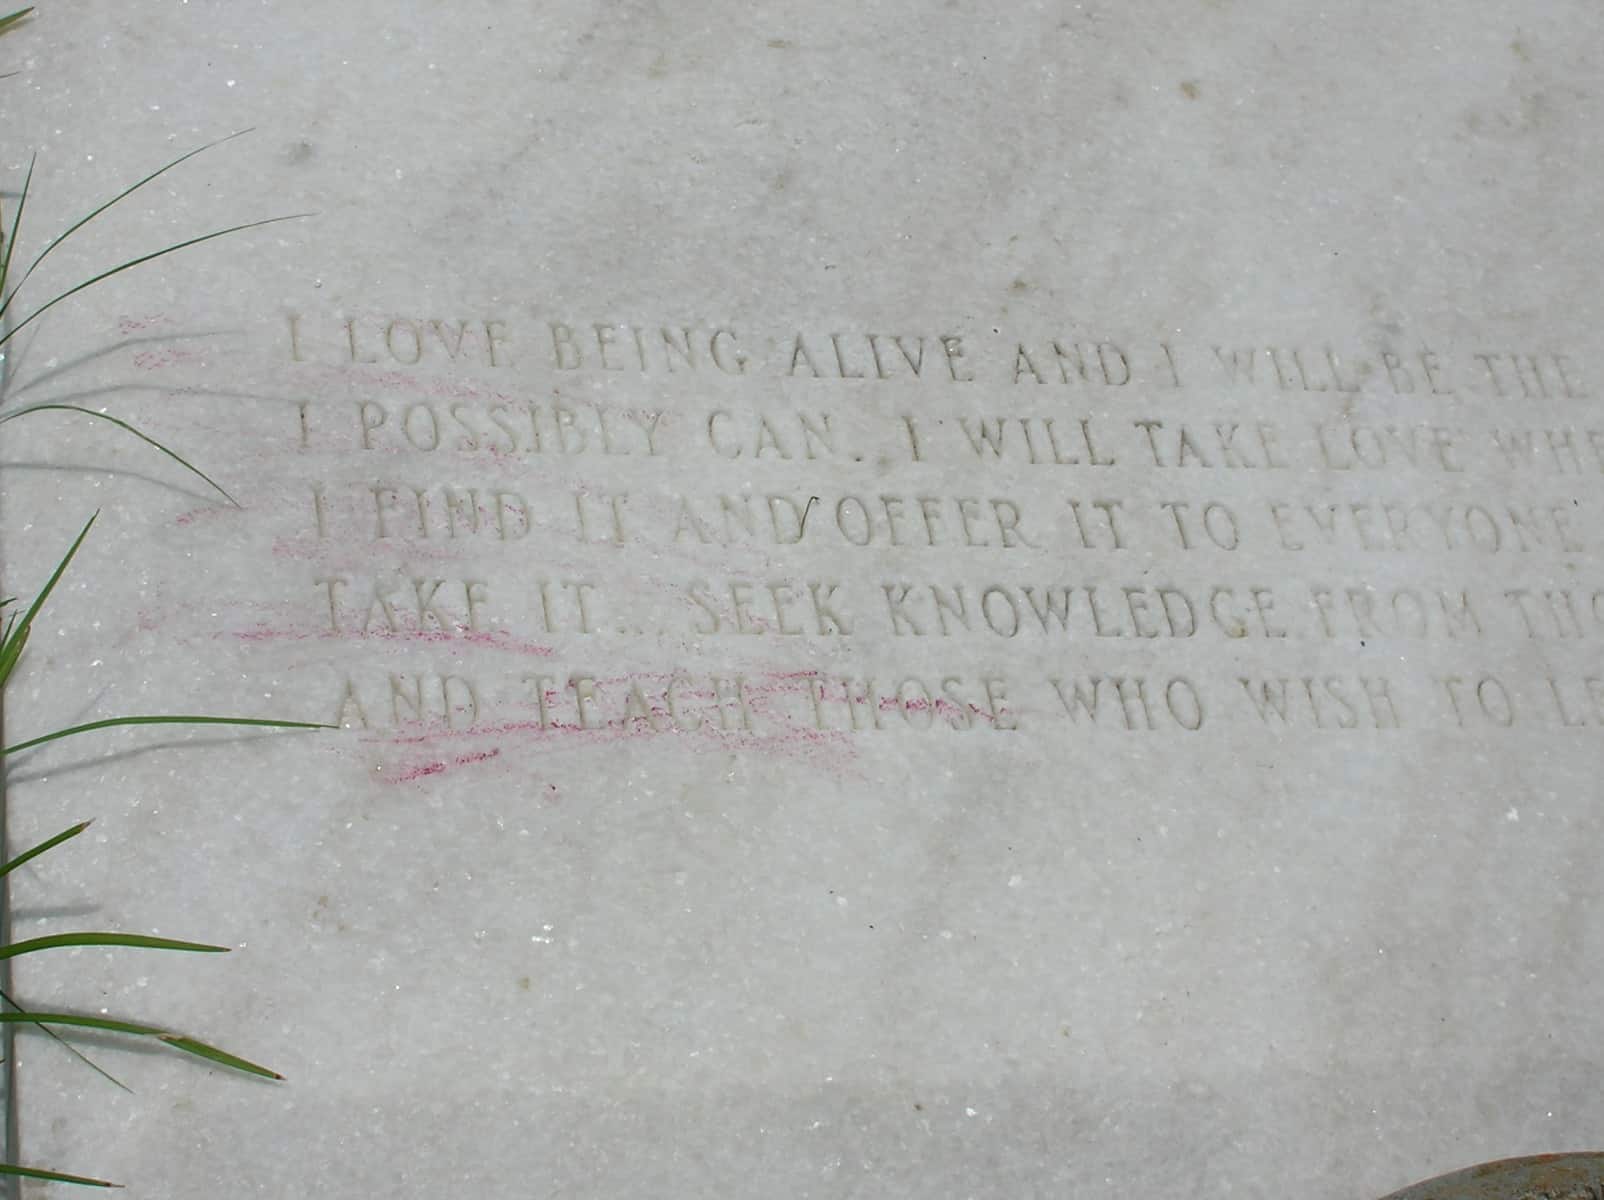 I LOVE BEING ALIVE AND I WILL BE THE
I POSSIBLY CAN. I WILL TAKE LOVE WHE
I FIND IT AND OFFER IT TO EVERYONE
TAKE IT... SEEK KNOWLEDGE FROM THO
AND TEACH THOSE WHO WISH TO LE